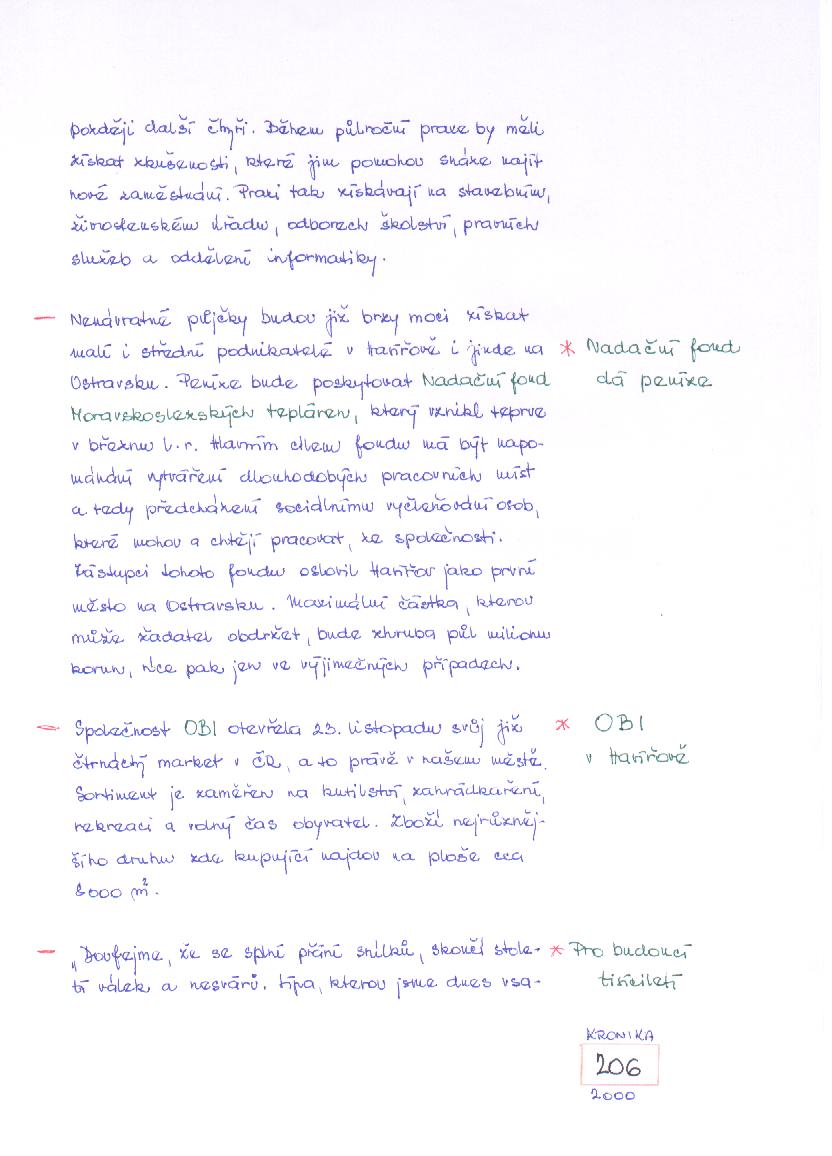 později další čtyři. Během půlroční praxe by měli
získat zkušenosti, které jim pomohou snáze najít
nové zaměstnání. Praxi tak získávají na stavebním,
živnostenském úřadu, odborech školství, právních
služeb a oddělení informatiky.
— Nenávratné půjčky budou již brzy moci získat
malí i střední podnikatelé v Havířově i jinde na
* Nadační fond
Ostravsku. Peníze bude poskytovat Nadační fond
dá peníze
Moravskoslezských tepláren, který vznikl teprve
v březnu t.r. Hlavním cílem fondu má být napo-
máhání vytváření dlouhodobých pracovních míst
a tedy předcházení sociálnímu vyčleňování osob,
které mohou a chtějí pracovat, ze společnosti.
Zástupci tohoto fondu oslovil Havířov jako první
město na Ostravsku. Maximální částka, kterou
může žadatel obdržet, bude zhruba půl milionu
korun, více pak jen ve výjimečných případech.
— Společnost OBI otevřela 23. listopadu svůj již
* OBI
čtrnáctý market v ČR, a to právě v našem městě.
v Havířově
Sortiment je zaměřen na kutilství, zahrádkaření,
rekreaci a volný čas obyvatel. Zboží nejrůzněj-
šího druhu zde kupující najdou na ploše cca
8000 m².
— „Doufejme, že se splní přání snílků, skončí stole-
* Pro budoucí
tí válek a nesvárů. Lípa, kterou jsme dnes vsa-
tisíciletí
KRONIKA
206
2000